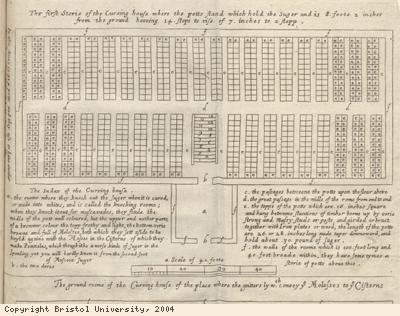 The first Storie of the Cureing house where the potts stand which hold the Suger and is 8. foote 2 inches
from the ground having 14 stepps to rise of 7. inches to a stepp.
The Index of the Cureing house.
a. the roome where they knock out the Suger when it is cured,
or made into whites, and is called the knocking roome;
when they knock it out for muscavados, they finde the
midle of the pott well coloured, but the upper and nether parts
of a browner colour the topp frothy and light, the bottom verie
browne and full of Molosses, both which they sett aside to be
boyld againe with the Molosses in the Cisterns of which they
make Peneles, which though it be a worse kinde of Suger in the
spending yet you will hardly know it from the second sort
of Muscovia Suger
b. the two dores
a
b
b
c
c
d
d
a Scale of 40 foote
10 20 30 40
c. the passages betweene the potts upon the floor above
d. the great passages in the midle of the roome from end to end
e. the topps of the potts which are 16. inches Square
and hang betweene stantions of timber borne up by verie
Strong and Massy studs or posts, and girded or bract
together with Iron plates or wood, the length of the potts
are 26. or 28. inches long made taper downeward, and
hold about 30. pound of Suger.
f. the walls of the roome which is 100. foot long and
40. foot broade within, they have sometymes a
Storie of potts above this.
The ground roome of the Cureing house of the place where the gutters ly wch convey ye Molosses to ye Cisterns
Copyright Bristol University, 2004